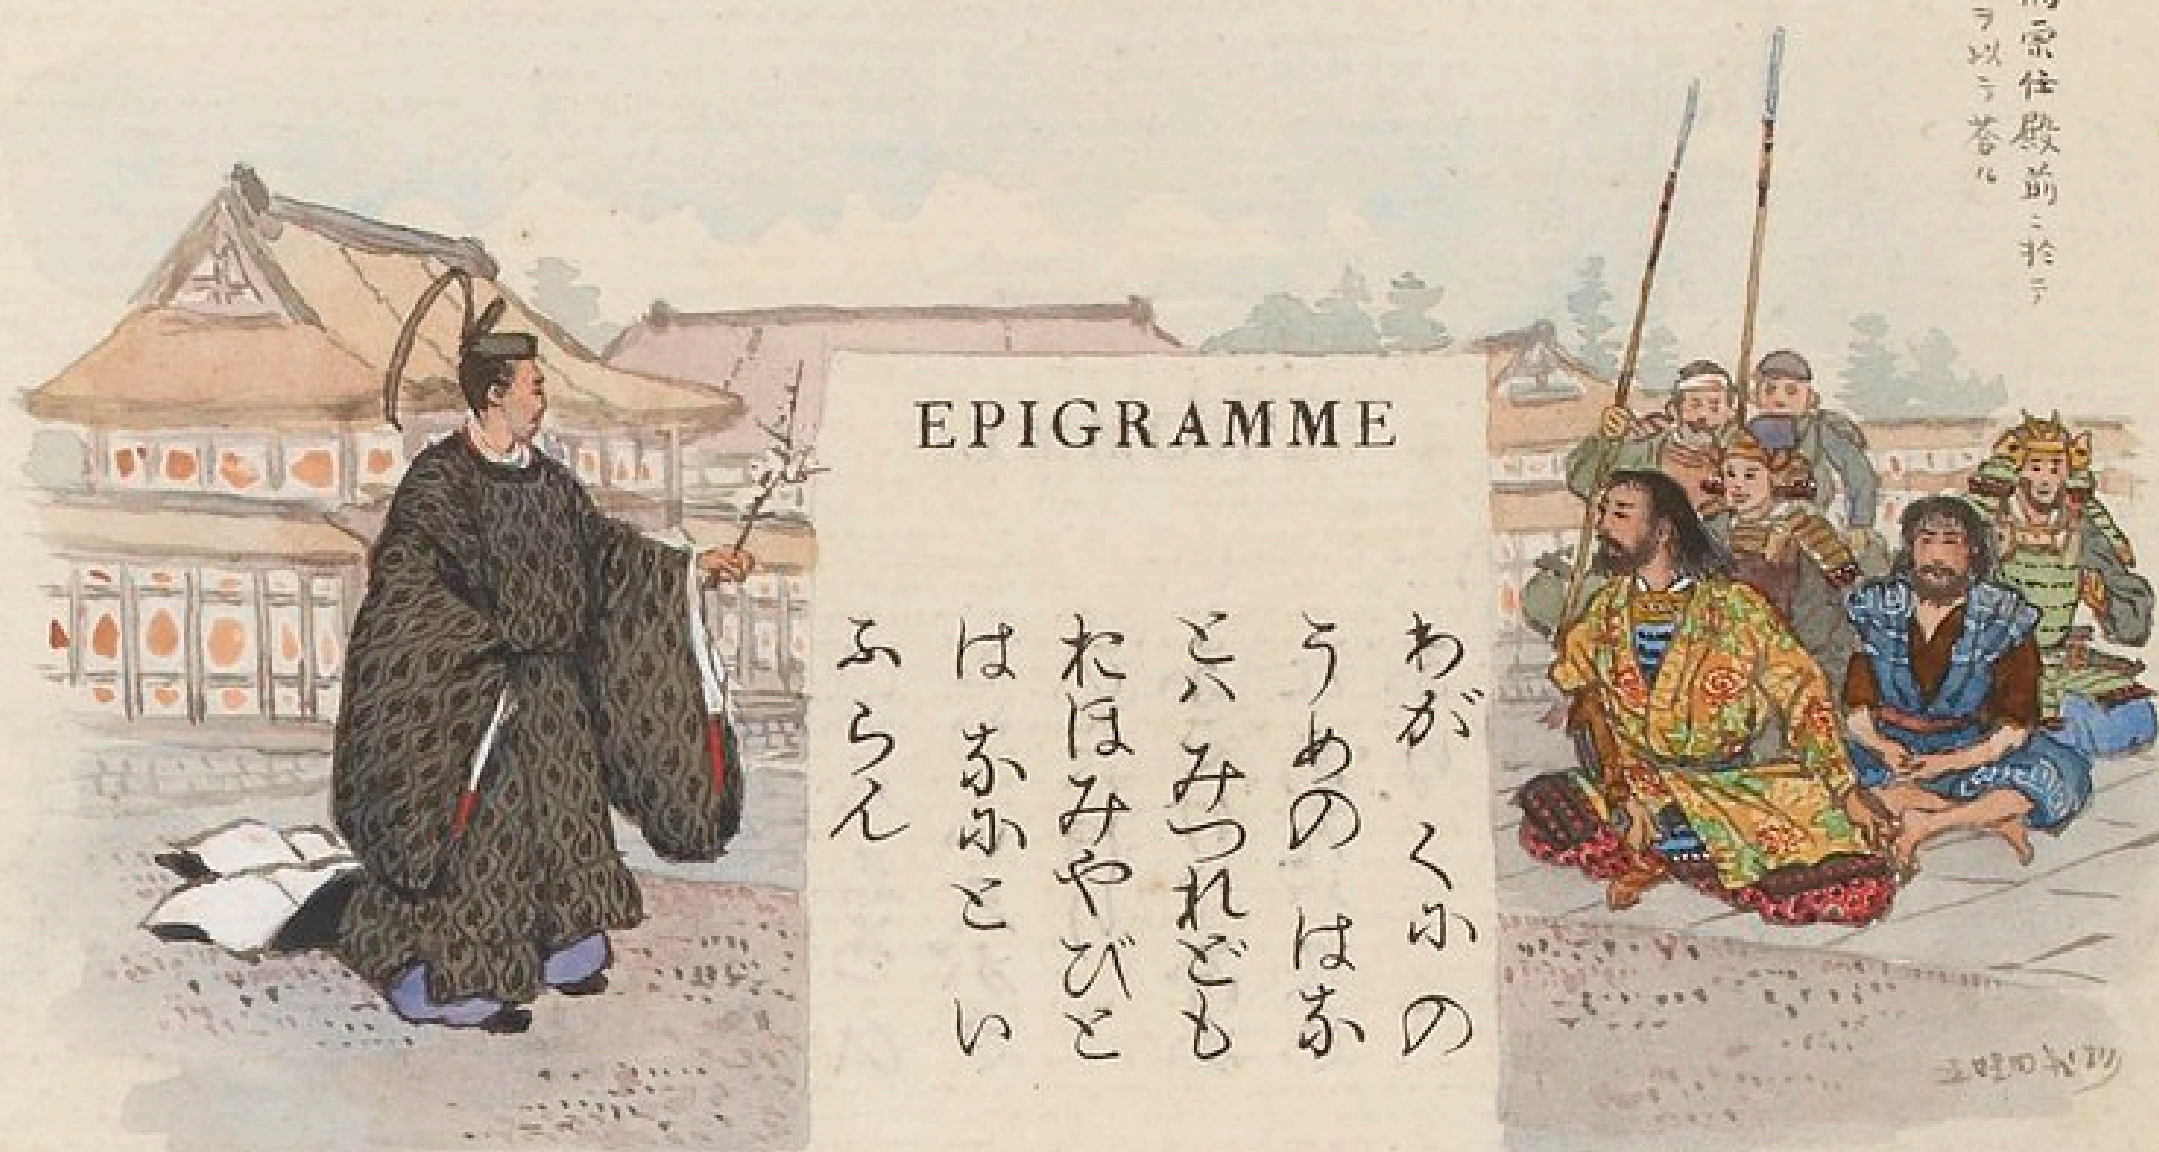 宗任殿前ニ於テ
ヲ以テ答ル
EPIGRAMME
わが くにの
うめの はな
とハ みつれども
おほみやびと
は なにと い
ふらん